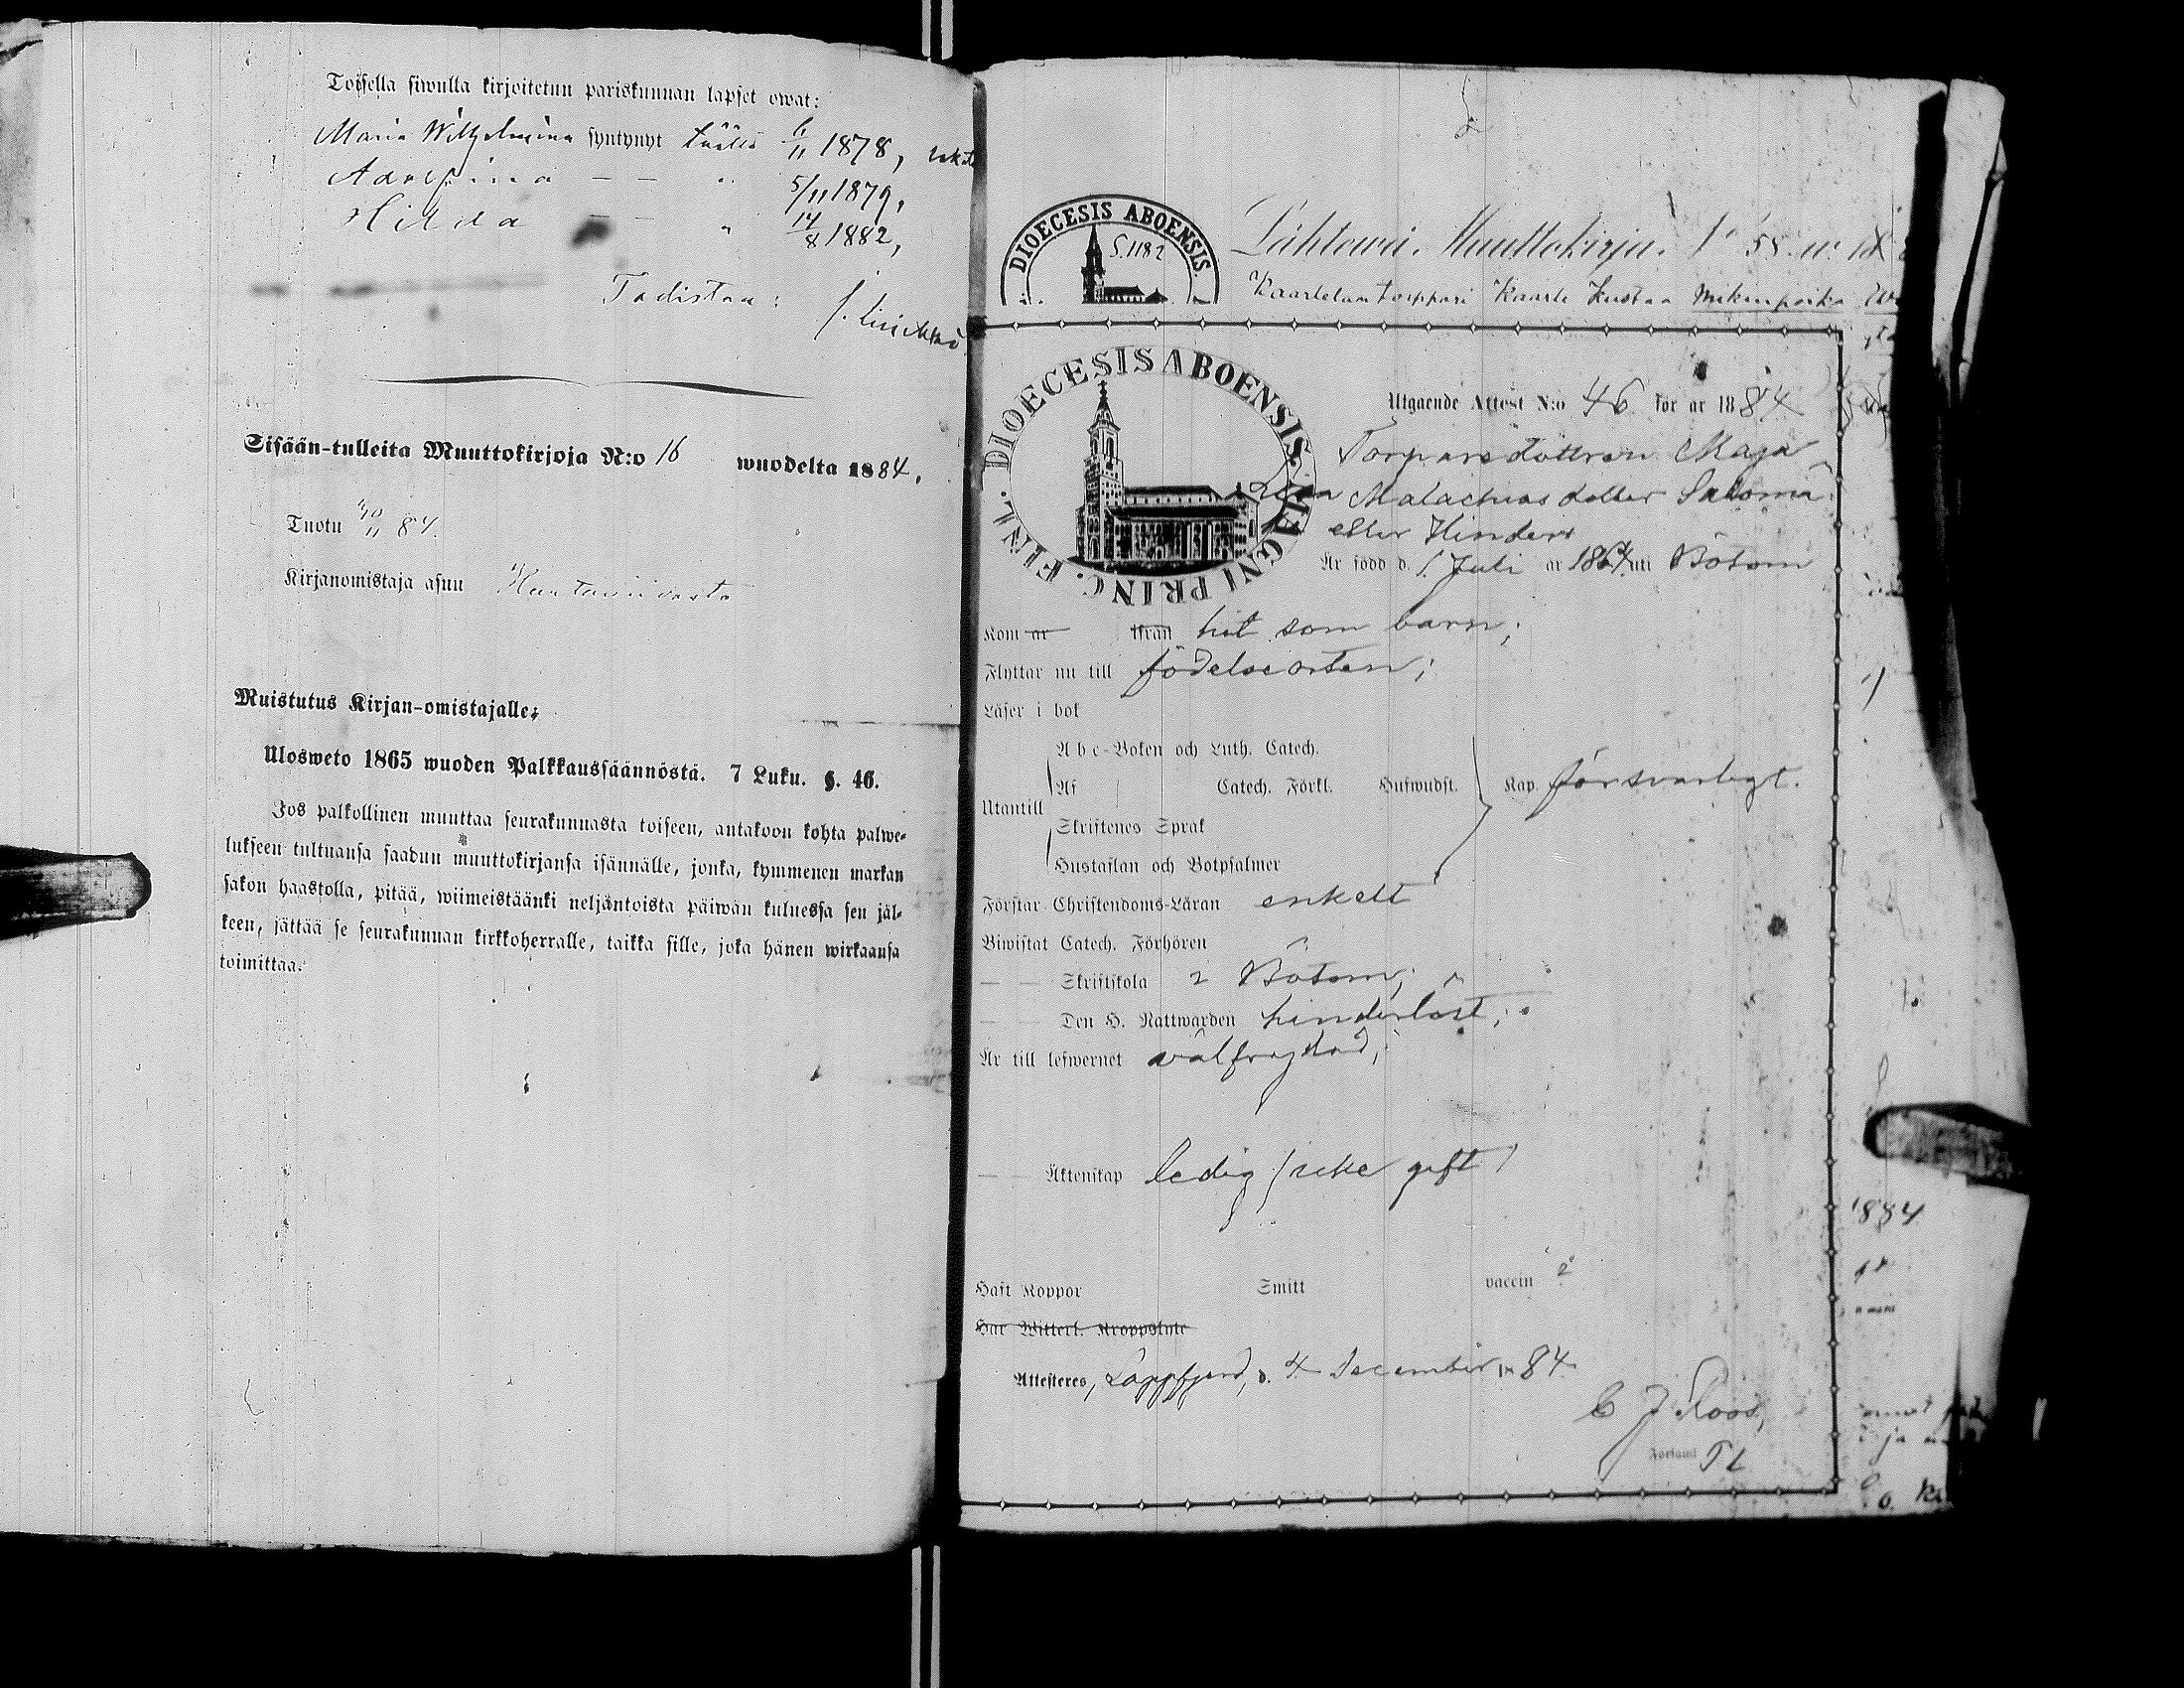 Toisella siwulla kirjoitetun pariskunnan lapset owat:
Maria Wilhelmina syntynyt täällä 6/11 1878,
— — " 5/11 1879,
Hilda — — " 14/8 1882,
Todistaa:
Sisään-tulleita Muuttokirjoja N:o 16 wuodelta 1884.
Tuotu 30/11 84.
Kirjanomistaja asuu
Muistutus Kirjan-omistajalle:
Ulosweto 1865 wuoden Palkkaussäännöstä. 7 Luku. §. 46.
Jos palkollinen muuttaa seurakunnasta toiseen, antakoon kohta palwe-
lukseen tultuansa saadun muuttokirjansa isännälle, jonka, kymmenen markan
sakon haastolla, pitää, wiimeistäänki neljäntoista päiwän kuluessa sen jäl-
keen, jättää se seurakunnan kirkkoherralle, taikka sille, joka hänen wirkaansa
toimittaa.
DIOECESIS ABOENSIS.
S. 1182
Lähtewä Muuttokirja. 58
torppari Kaarle Kustaa Mikenpoika
DIOECESIS ABOENSIS MAGNI PRINC. FINL.
Utgaende Attest N:o 46 för ar 1884
Torparedottren Maja
Malachiasdotter Salomä
eller Hinders
Är född d. 1 Juli ar 1864 uti Bötom
Kom ar ifran hit som barn;
Flyttar nu till födelseorten;
Läser i bok
Abc-Boken och Luth. Catech.
Utantill
Af Catech. Förkl. Hufwudst. Kap. försvarligt.
Skriftenes Sprak
Hustaflan och Botpsalmer
Förstar Christendoms-Läran enkelt
Biwistat Catech. Förhören
— — Skriftskola i Bötom;
— — Den H. Nattwarden hinderlöst;
Är till lefwernet välfrejdad;
— — Äktenskap ledig (icke gift)
Haft Koppor Smitt vaccin
Har Witterl. Kroppslyte
Attesteres, Lappfjerd, d. 4 December 1884
C J Roos,
1884